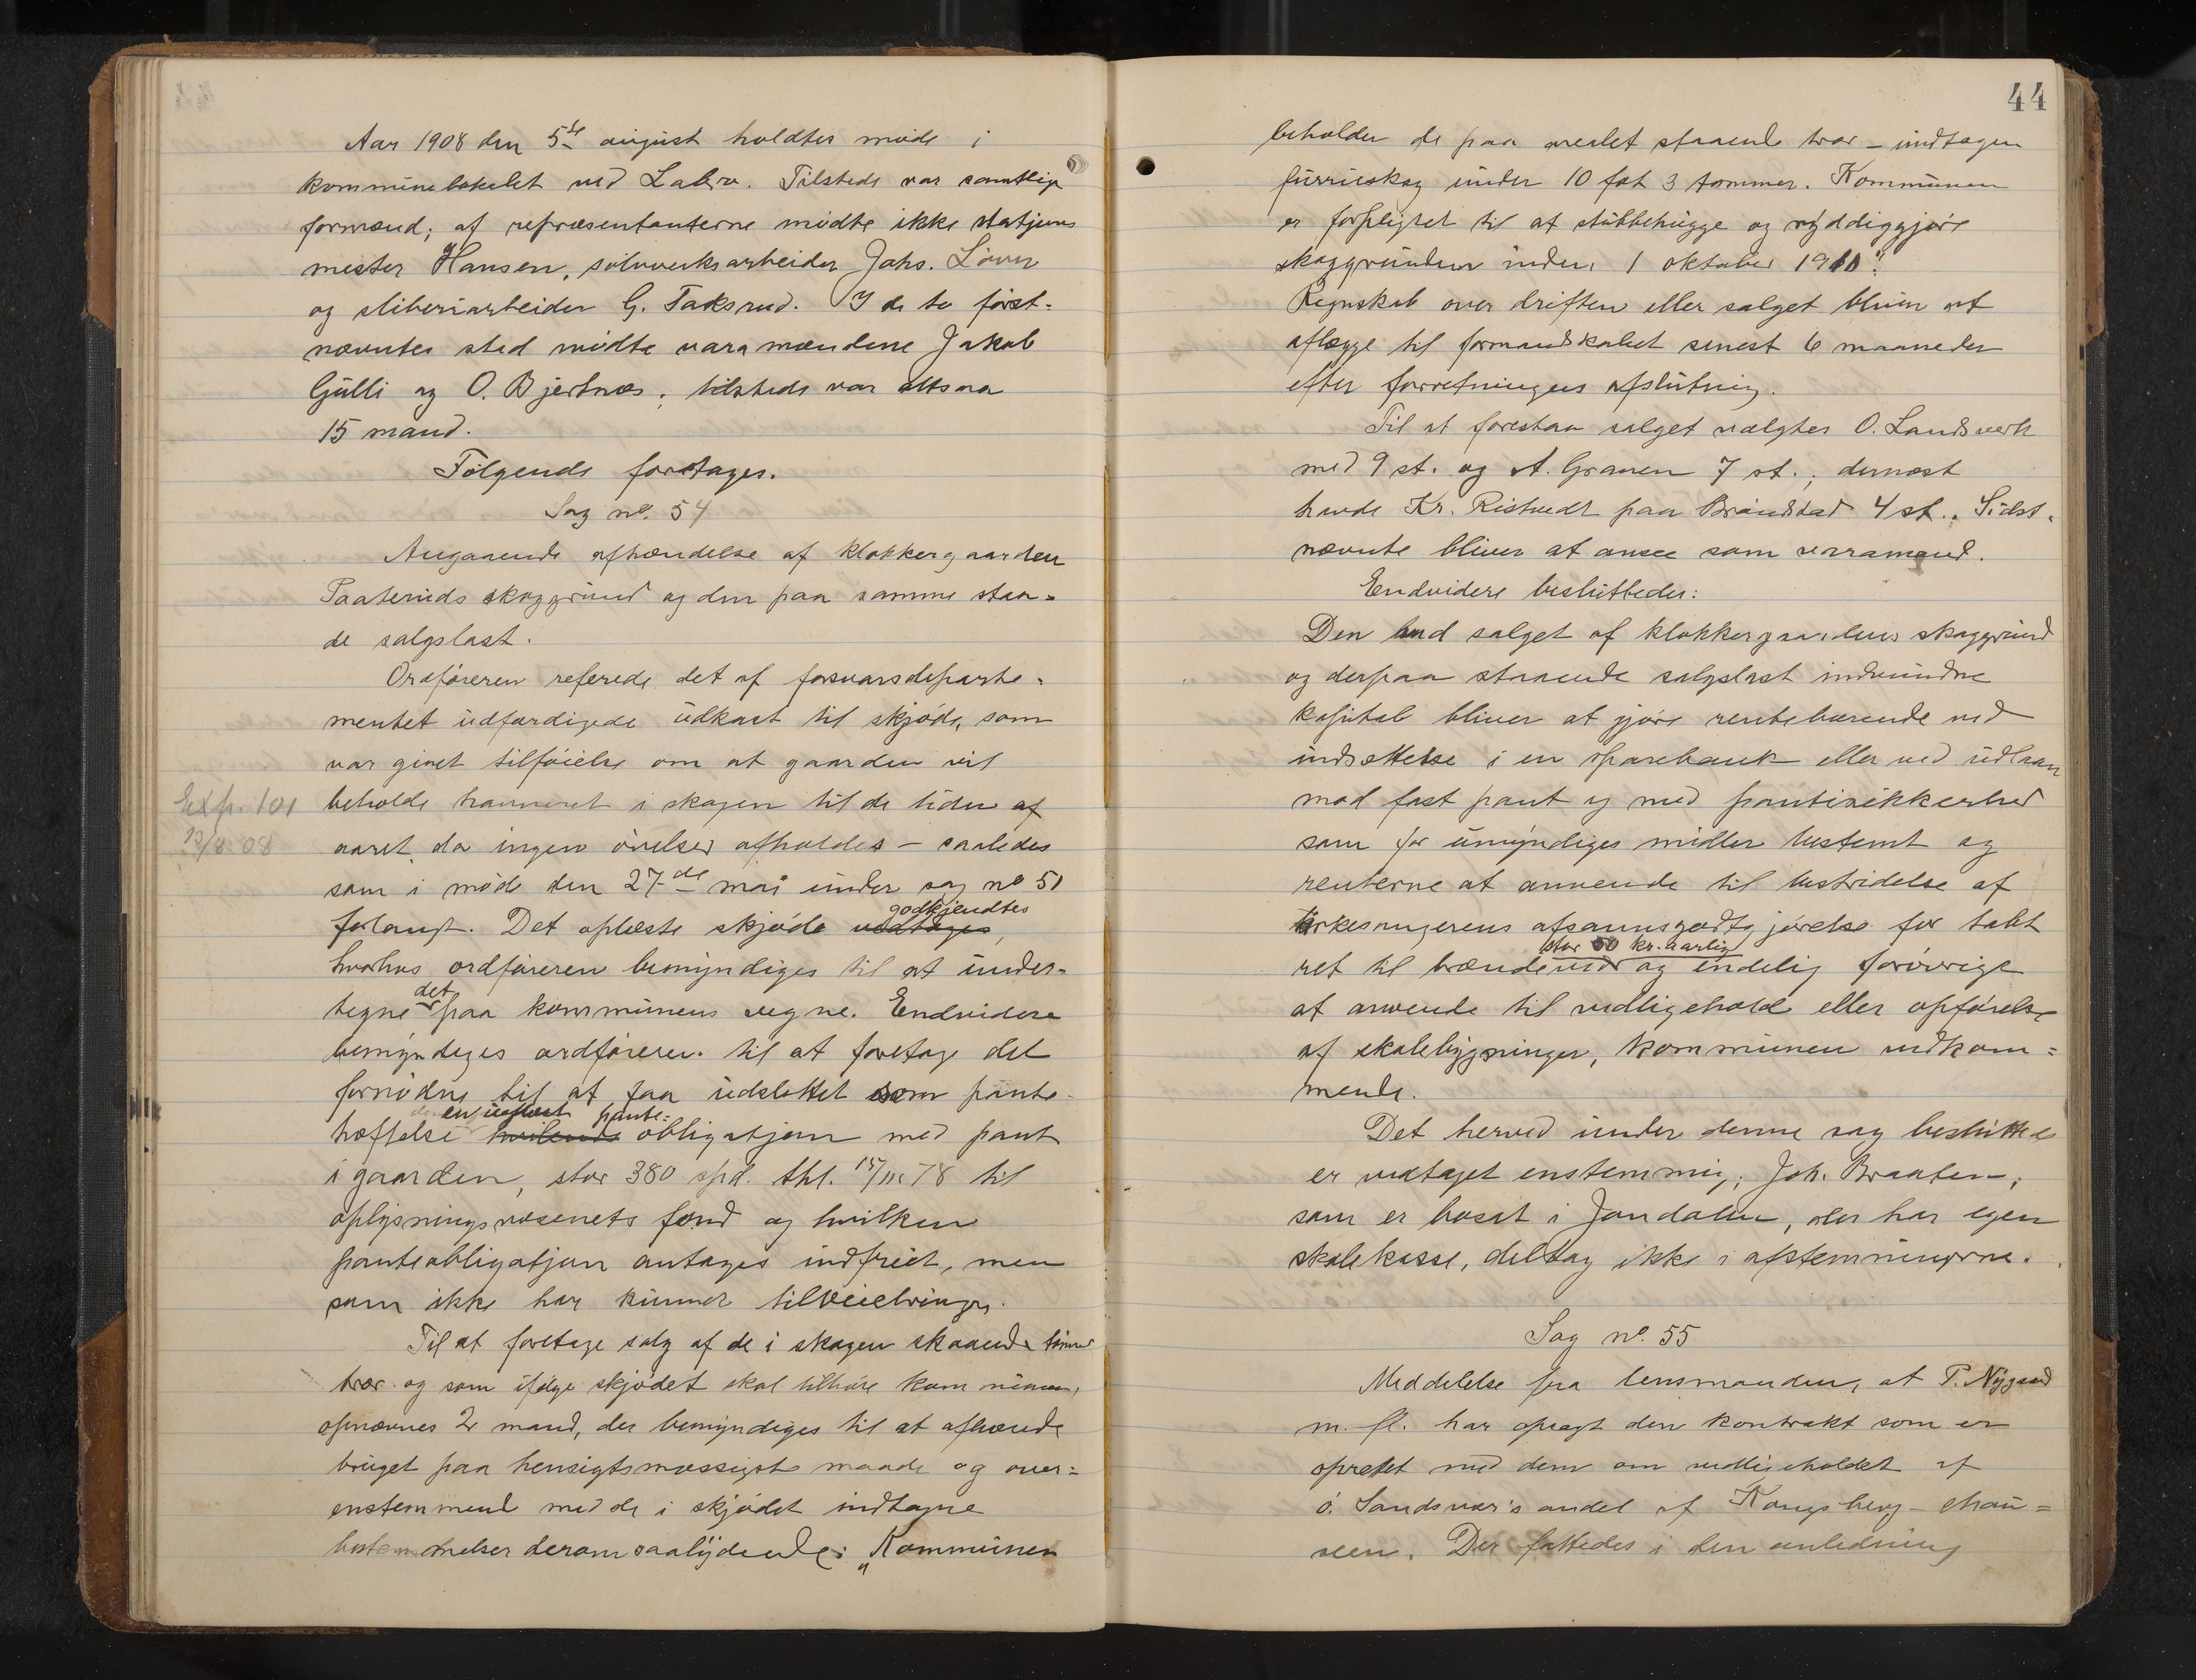 Aar 1908 den 5te august holdtes møde i
kommunelokalet ved Labro. Tilstede var samtlige
formænd; af repræsentanterne mødte ikke statjons
mester Hansen, sølvverksarbeider Johs. Løver
og sliberiarbeider G. Taksrud. I de to først-
nævntes sted mødte varamændene Jakob
Gulli og O. Bjertnæs; tilstede var altsaa
15 mand.
Følgende foretages.
Sag no. 54
Angaaende afhændelse af klokkergaarden
Paateruds skoggrund og den paa samme staa-
de salgslast.
Ordføreren referede det af forsvarsdeparte-
mentet udfærdigede udkast til skjøde, som
var givet tilføielse om at gaarden vil
Exp. 101
beholde havneret i skogen til de tider af
13/8 08
aaret da ingen øvelser afholdes – saaledes
som i møde den 27de mai under sag no 51
godkjendtes
forlangt. Det oplæste skjøde vedtages,
hvorhos ordføreren bemyndiges til at under-
det
tegne paa kommunens vegne. Endvidere
bemyndiges ordføreren til at foretage det
fornødne til at faa udslettet som pante-
en uaflæst pante-
heftelse hvilende obligatjon med pant
i gaarden, stor 380 spd. thl. 15/11 78 til
oplysningsvæsenets fond og hvilken
panteobligatjon antages indfriet, men
som ikke har kunnet tilveiebringes.
Til at foretage salg af de i skogen staaende tømmer
trær og som ifølge skjødet skal tilhøre kommunen,
opnævnes 2 mand, der bemyndiges til at afhænde
bruget paa hensigtsmæssigste maade og over-
enstemmend med de i skjødet indtagne
bestemmelser derom saalydende: "Kommunen
44
beholder de paa arealet staaende trær – undtagen
furrieskog under 10 fot 3 tommer. Kommunen
er forpligtet til at stubbehugge og ryddiggjøre
skoggrunden inden 1 oktober 1910".
Regnskab over driften eller salget bliver at
aflægge til formandskabet senest 6 maaneder
efter forretningens afslutning.
Til at forestaa salget vælgtes O. Landsverk
med 9 st. og A. Granen 7 st.; dernæst
havde Kr. Ristvedt paa Brandstad 4 st. Sidst-
nævnte bliver at ansee som varamand.
Endvidere besluttedes:
Den ved salget af klokkergaardens skoggrund
og derpaa staaende salgslast indvundne
kapital bliver at gjøre rentebærende ved
indsættelse i en sparebank eller ved udlaan
mod fast pant og med pantisikkerhed
som for umyndiges midler bestemt og
renterne at anvende til bestridelse af
kirkesangerens afsavnsgodtgjørelse for tabt
stor 50 kr. aarlig
ret til brændeved og endelig forøvrigt
at anvende til vedligehold eller opførelse
af skolebygninger, kommunen vedkom-
mende.
Det herved under denne sag besluttede
er vedtaget enstemmig; Joh. Braaten,
som er bosat i Jondalen, der har egen
skolekasse, deltog ikke i afstemningerne.
Sag no. 55
Meddelelse fra lensmanden, at P. Nygaard
m. fl. har opsagt den kontrakt som er
oprettet med dem om vedligeholdet af
ø. Sandsvær's andel af Kongsberg-chau-
seen. Der fattedes i den anledning